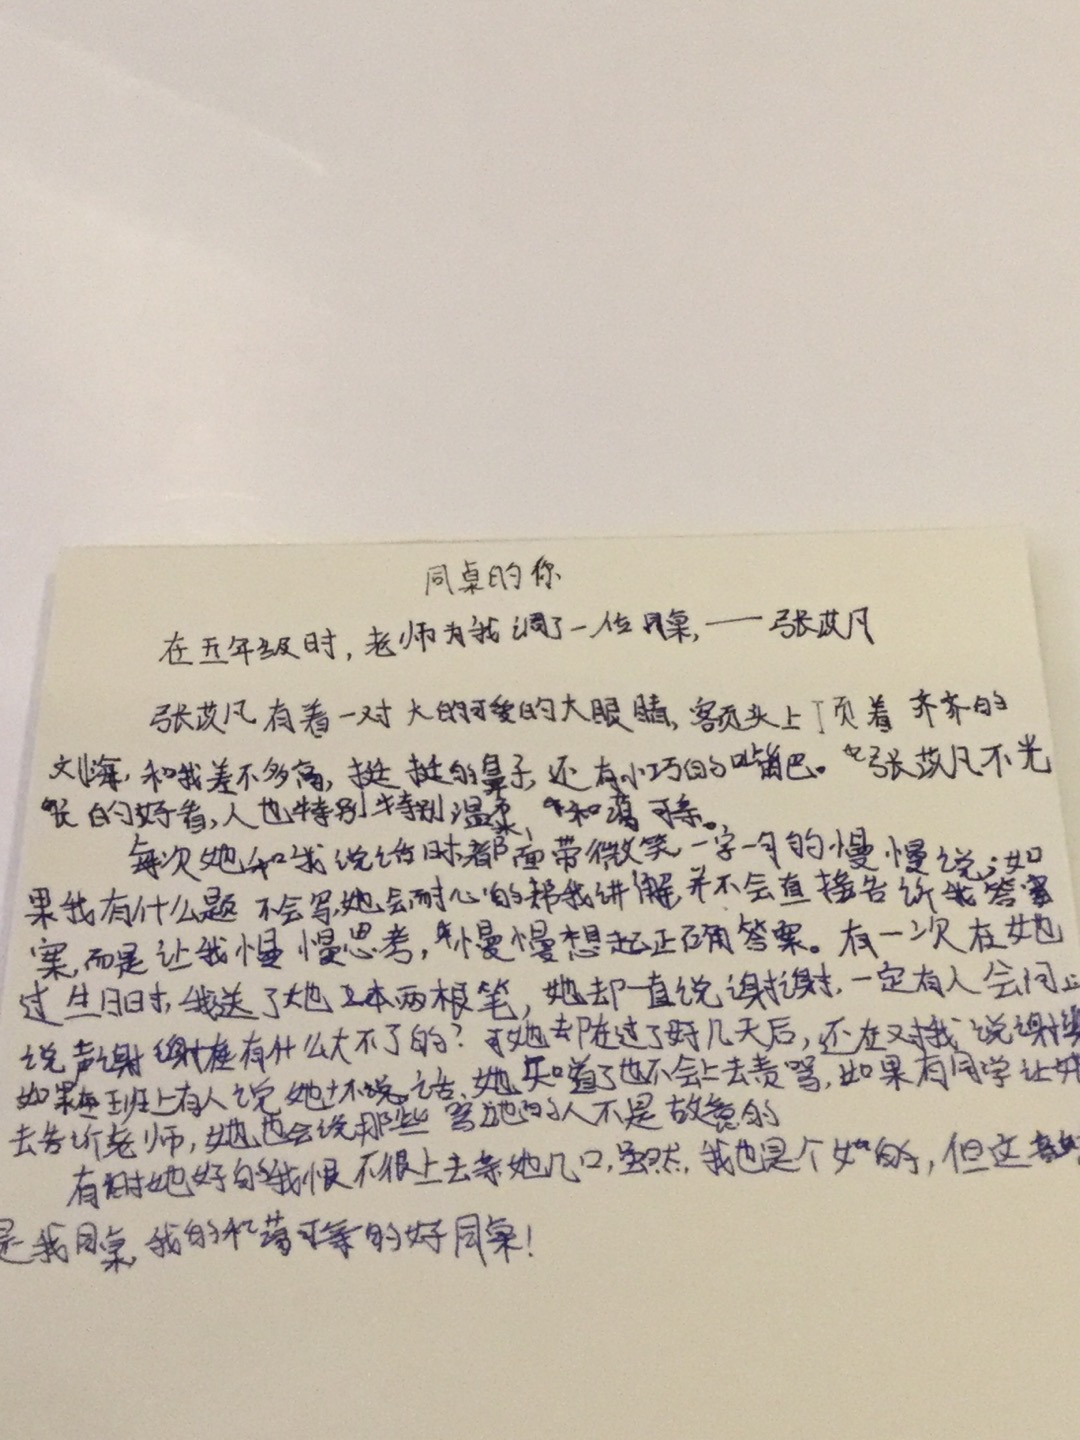 同桌的你
在五年级时，老师为我调了一位同桌，——张苡凡
张苡凡有着一对大的可爱的大眼睛，额头上顶着齐齐的
刘海，和我差不多高，挺挺的鼻子，还有小巧的嘴巴。张苡凡不光
长的好看，人也特别特别温柔，和蔼可亲。
每次她和我说话时都面带微笑一字一句的慢慢说；如
果我有什么题不会写，她会耐心的帮我讲解，并不会直接告诉我答案
案，而是让我慢慢思考，慢慢想起正确答案。有一次在她
过生日时，我送了她本两根笔，她却一直说谢谢，一定有人会问
说声谢谢有什么大不了的？可她却在过了好几天后，还在对我说谢谢
如果在班上有人说她坏说话，她知道了也不会上去责骂，如果有同学让她
去告诉老师，她也会说那些骂她的人不是故意的
有时她好的我恨不很上去亲她几口，虽然，我也是个女的，但这
是我同桌，我的和蔼可亲的好同桌！